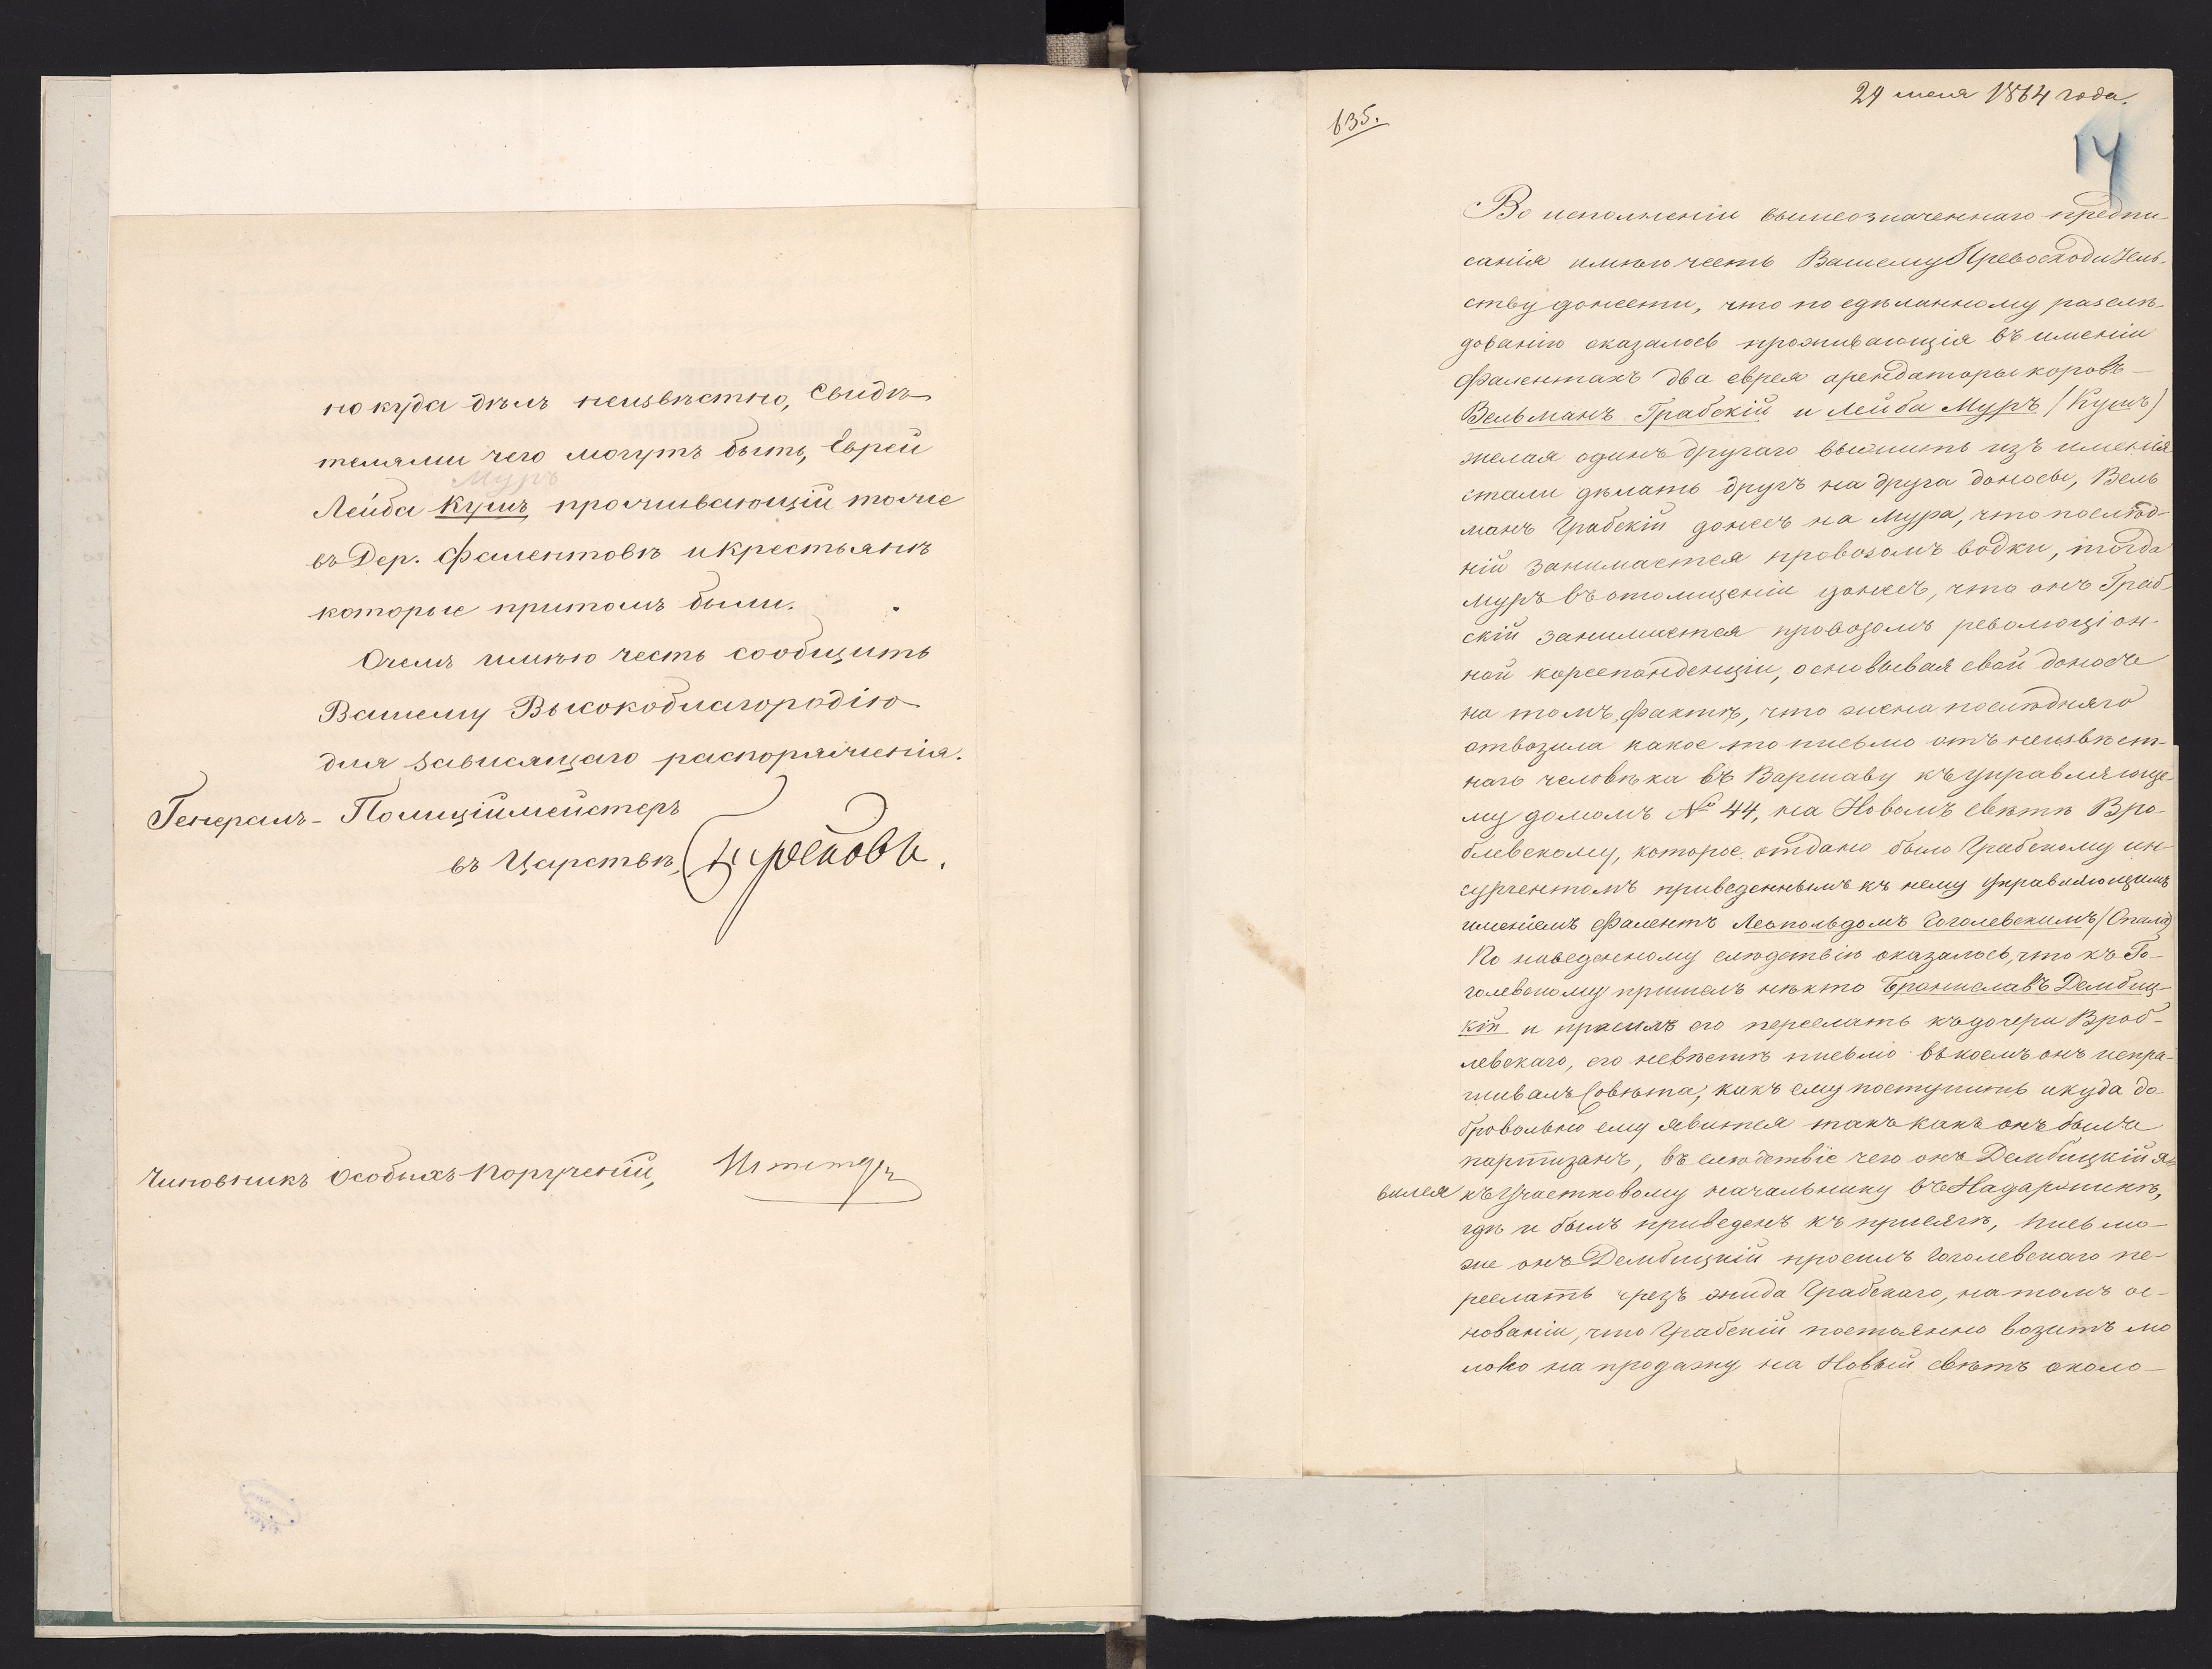 но куда дѣлъ неизвѣстно, Свидѣ
телями чего могутъ быть, Еврей
Муръ
Лейба Кушъ проживающій тоже
въ Дер. Фалентовѣ и крестьянѣ
которые притомъ были.
О чемъ имѣю честь сообщить
Вашему Высокоблагородію
для зависящаго распоряженія.
Генералъ-Полиціймейстеръ
въ Царствѣ,
Чиновникъ Особыхъ Порученій,
635.
1864 года.
14
Во исполненіи вышеозначеннаго предпи
санія имѣю честь Вашему Превосходитель-
ству донести, что по сдѣланному разслѣ-
дованію оказалось проживающія въ имѣніи
Фалентахъ два еврея арендаторы коровъ-
Вельманъ Грабскій и Лейба Муръ (Кушъ)
желая одинъ другаго выжить изъ имѣнія
стали дѣлать другъ на друга доносы, Вель
манъ Грабскій донесъ на Мура, что послѣд-
ній занимается провозомъ водки, тогда
Муръ въ отомщеніи донесъ, что онъ Граб-
скій занимается провозомъ революціон-
ной кореспонденціи, основывая свой доносъ
на томъ фактѣ, что жена послѣдняго
отвозила какое то письмо отъ неизвѣст-
наго человѣка въ Варшаву къ управляюще-
му домомъ № 44, на Новомъ свѣтѣ Вро-
блевскому, которое отдано было Грабскому ин-
сургентомъ приведеннымъ къ нему управляющимъ
имѣніемъ Фалентъ Леопольдомъ Гоголевскимъ
По наведенному слѣдствію оказалось, что къ Го-
голевскому пришелъ нѣкто Брониславъ Дембиц-
кій и просилъ его переслать къ дочери Вроб-
левскаго, его невѣстѣ письмо въ коемъ онъ испра-
шивалъ совѣта, какъ ему поступить и куда до-
бровольно ему явится такъ какъ онъ былъ
партизанъ, въ слѣдствіе чего онъ Дембицкій я-
вился къ Участковому начальнику въ Надаржинѣ,
гдѣ и былъ приведенъ къ присягѣ, письмо-
же онъ Дембицкій просилъ Гоголевскаго пе-
реслать чрезъ жида Грабскаго, на томъ ос-
нованіи, что Грабскій постоянно возитъ мо
локо на продажу на Новый свѣтъ около-